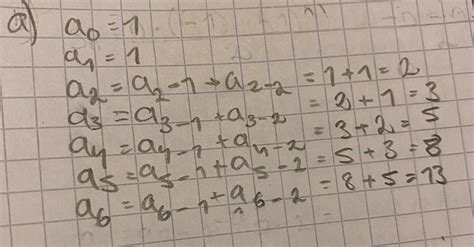 a) a₀ = 1
a₁ = 1
a₂ = a₂₋₁ + a₂₋₂ = 1 + 1 = 2
a₃ = a₃₋₁ + a₃₋₂ = 2 + 1 = 3
a₄ = a₄₋₁ + a₄₋₂ = 3 + 2 = 5
a₅ = a₅₋₁ + a₅₋₂ = 5 + 3 = 8
a₆ = a₆₋₁ + a₆₋₂ = 8 + 5 = 13